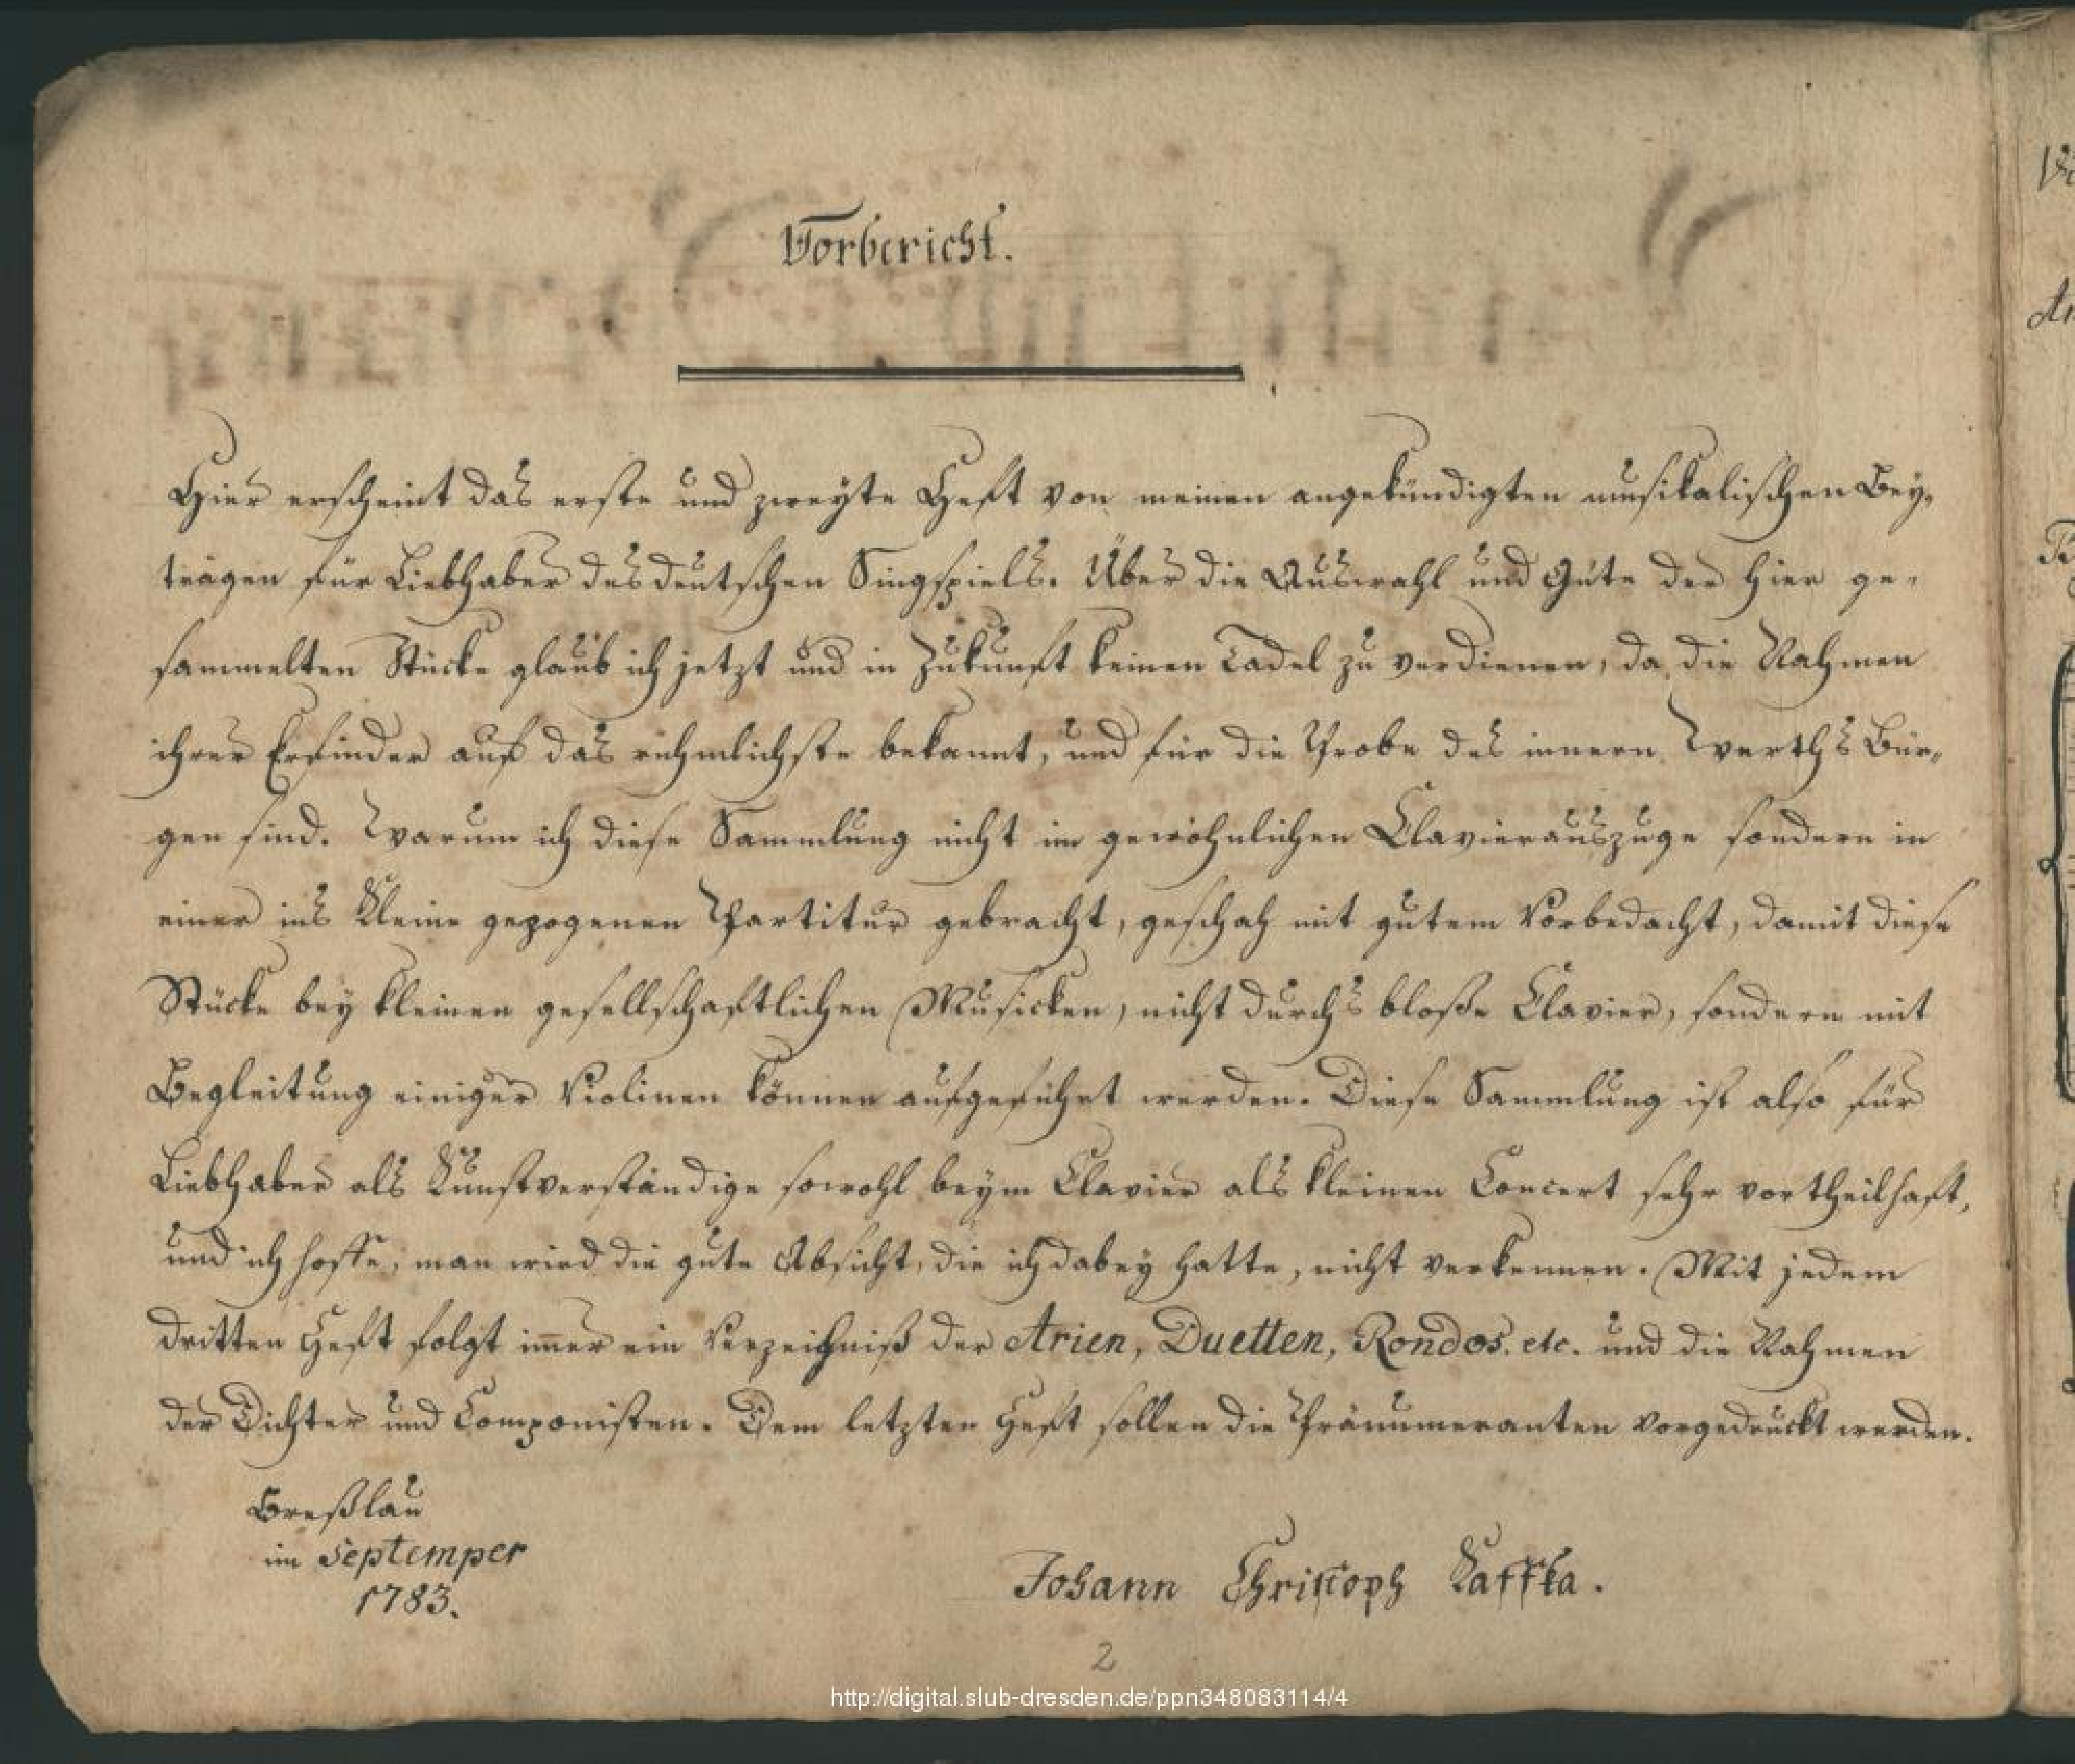 Vorbericht.
Hier erscheint das erste und zweyte Heft von meinen angekündigten musikalischen Bey-
trägen für Liebhaber des deutschen Singspiels. Über die Auswahl und Güte der hier ge-
sammelten Stücke glaub ich jetzt und in Zukunft keinen Tadel zu verdienen, da die Nahmen
ihrer Erfinder auf das rühmlichste bekannt, und für die Probe des innern Werths Bür-
gen sind. Warum ich diese Sammlung nicht im gewöhnlichen Clavierauszuge sondern in
einer ins Kleine gezogenen Partitur gebracht, geschah mit gutem Vorbedacht, damit diese
Stücke bey kleinen gesellschaftlichen Musicken, nicht durchs bloße Clavier, sondern mit
Begleitung einiger Violinen können aufgeführt werden. Diese Sammlung ist also für
Liebhaber als Kunstverständige sowohl beym Clavier als kleinen Concert sehr vortheilhaft,
und ich hoffe, man wird die gute Absicht, die ich dabey hatte, nicht verkennen. Mit jedem
dritten Heft folgt im̄er ein Verzeichniß der Arien, Duetten, Rondos. etc. und die Nahmen
der Dichter und Componisten. Dem letzten Heft sollen die Pränumeranten vorgedruckt werden.
Breßlau
im Septemper
1783.
Johann Christoph Kaffka.
2
http://digital.slub-dresden.de/ppn348083114/4